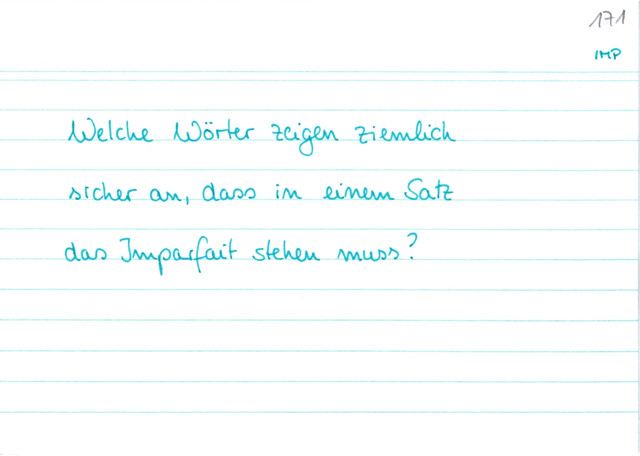 171
IMP
Welche Wörter zeigen ziemlich
sicher an, dass in einem Satz
das Imparfait stehen muss?